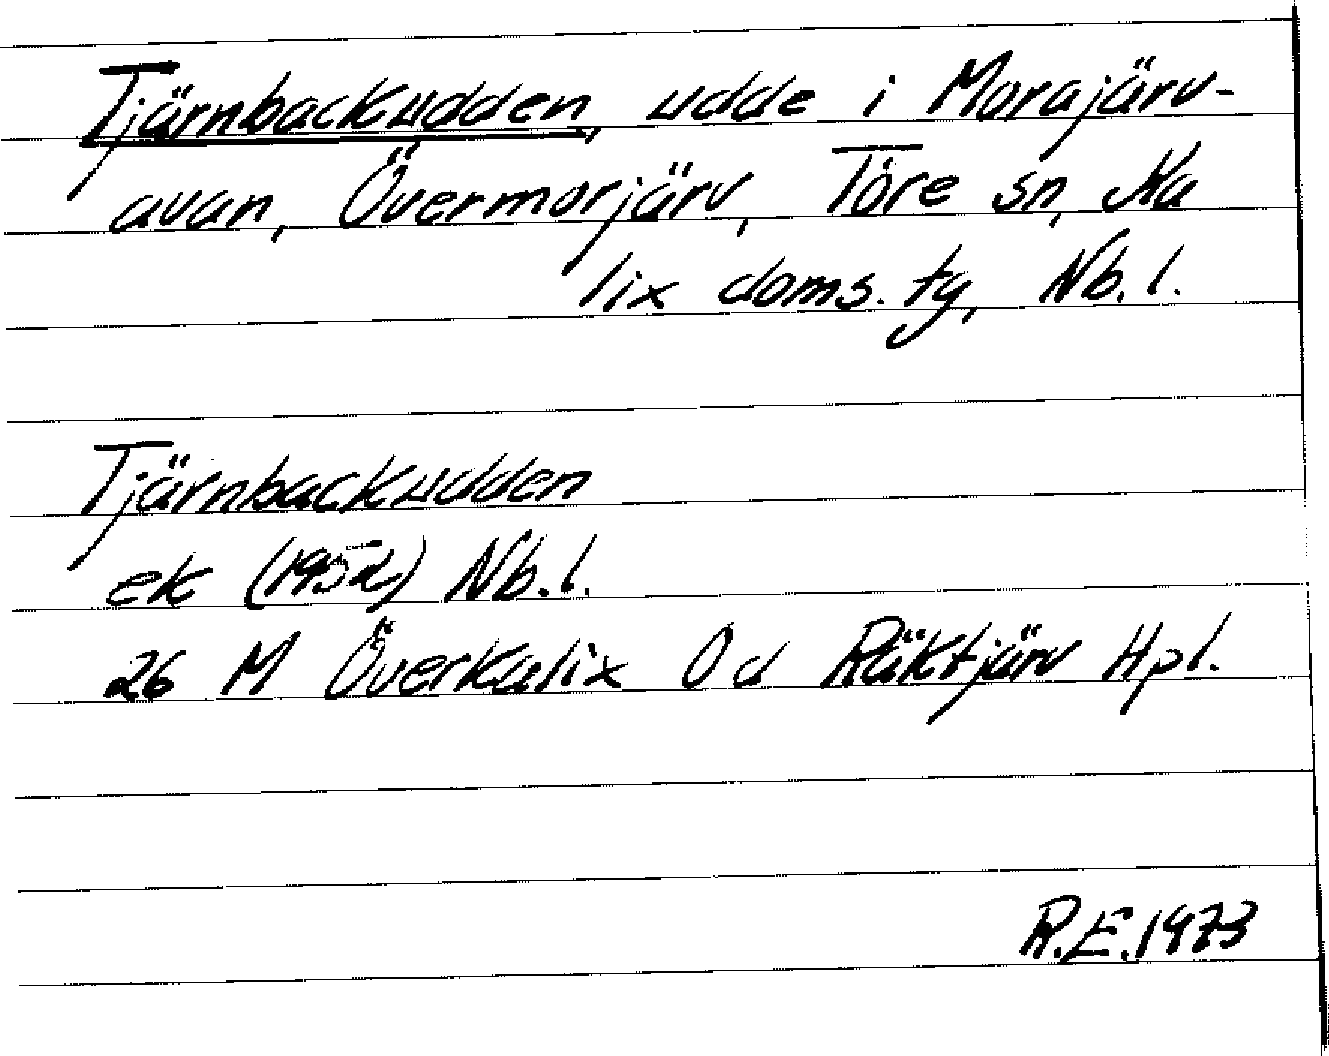 Tjärnbackudden, udde i Morajärv-
avan, Övermorjärv, Töre sn, Ka
lix doms. tg, Nb. l.
Tjärnbackudden
ek (1952) Nb. l.
26 M Överkalix 0 d Räktjärv Hpl.
R.E. 1973